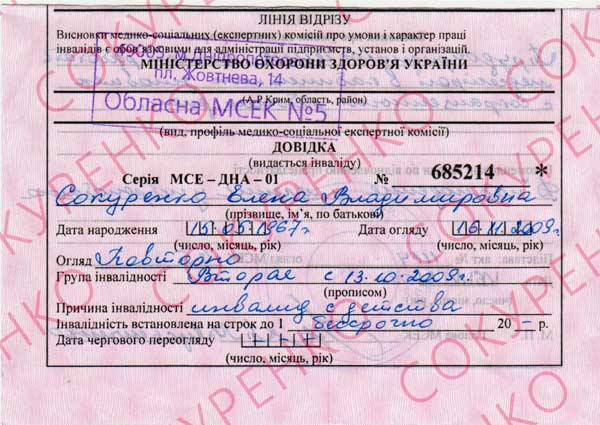 ЛІНІЯ ВІДРІЗУ
Висновки медико-соціальних (експертних) комісій про умови і характер праці
інвалідів є обов'язковими для адміністрації підприємств, установ і організацій.
МІНІСТЕРСТВО ОХОРОНИ ЗДОРОВ'Я УКРАЇНИ
49005, м. Дніпропетровськ
пл. Жовтнева, 14
Обласна МСЕК №5
(А.Р.Крим, область, район)
(вид, профіль медико-соціальної експертної комісії)
ДОВІДКА
(видається інваліду)
Серія МСЕ – ДНА – 01 № 685214 *
Сокуренко Елена Владимировна
(прізвище, ім'я, по батькові)
Дата народження 15 05 1967г Дата огляду 16 11 2009г.
(число, місяць, рік) (число, місяць, рік)
Огляд Повторно
Група інвалідності Вторая с 13.10.2009г.
(прописом)
Причина інвалідності инвалид с детства
Інвалідність встановлена на строк до 1 бессрочно 20 – р.
Дата чергового переогляду
(число, місяць, рік)
СОКУРЕНКО